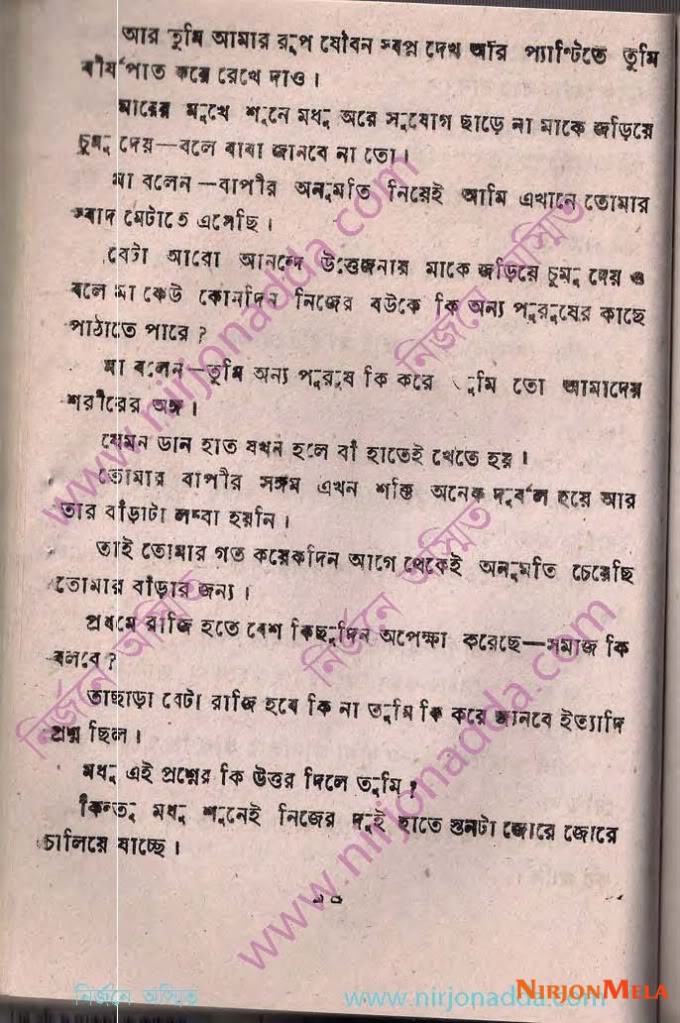 আর তুমি আমার রূপ যৌবন স্বপ্ন দেখ আর প্যান্টিতে তুমি
বীর্যপাত করে রেখে দাও।
মায়ের মুখে শুনে মধু আরে সুযোগ ছাড়ে না মাকে জড়িয়ে
চুমু দেয়—বলে বাবা জানবে না তো।
মা বলেন—বাপীর অনুমতি নিয়েই আমি এখানে তোমার
স্বাদ মেটাতে এসেছি।
বেটা আরো আনন্দে উত্তেজনায় মাকে জড়িয়ে চুমু দেয় ও
বলে মা কেউ কোনদিন নিজের বউকে কি অন্য পুরুষের কাছে
পাঠাতে পারে?
মা বলেন—তুমি অন্য পুরুষ কি করে তুমি তো আমাদের
শরীরের অঙ্গ।
যেমন ডান হাত যখন হলে বাঁ হাতেই খেতে হয়।
তোমার বাপীর সঙ্গম এখন শক্তি অনেক দুর্বল হয়ে আর
তার বাঁড়াটা লম্বা হয়নি।
তাই তোমার গত কয়েকদিন আগে থেকেই অনুমতি চেয়েছি
তোমার বাঁড়ার জন্য।
প্রথমে রাজি হতে বেশ কিছুদিন অপেক্ষা করেছে—সমাজ কি
বলবে?
তাছাড়া বেটা রাজি হবে কি না তুমি কি করে জানবে ইত্যাদি
প্রশ্ন ছিল।
মধু এই প্রশ্নের কি উত্তর দিলে তুমি?
কিন্তু মধু শুনেই নিজের দুই হাতে স্তনটা জোরে জোরে
চালিয়ে যাচ্ছে।
www.nirjonadda.com
নির্জনে অস্মিত
নির্জনে অস্মিত
নির্জনে অস্মিত
www.nirjonadda.com
নির্জনে অস্মিত
www.nirjonadda.com
NIRJONMELA